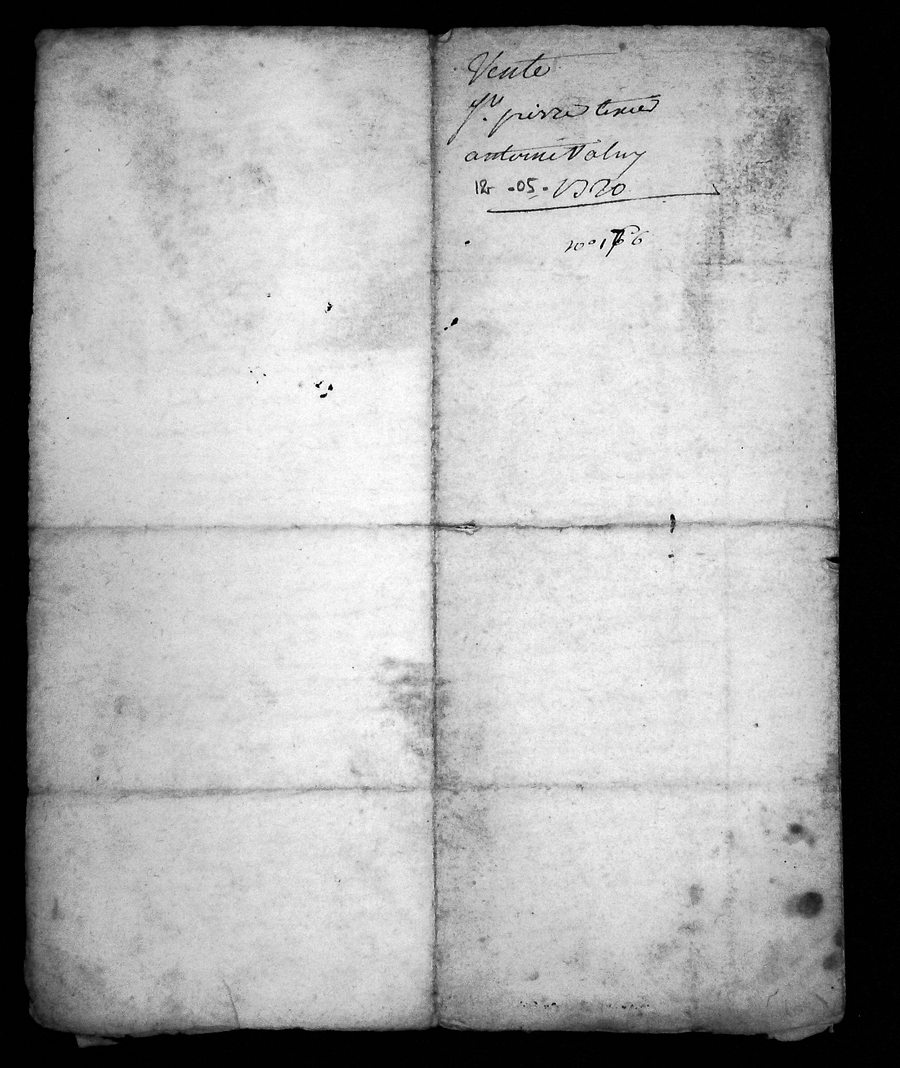 Vente
Sr. pierre texier
antoine Valuy
12 -05- 1720
no 166